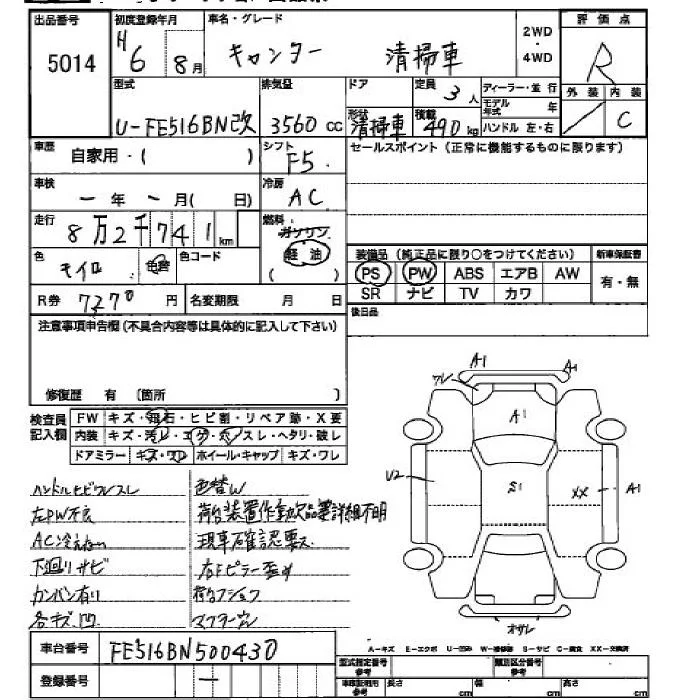 出品番号 初度登録年月 車名・グレード 2WD ・ 4WD 評価点
5014 H6 8月 キャンター 清掃車 R
型式 排気量 ドア 定員 3人 ディーラー・並行 外装 内装
モデル年式 年
U-FE516BN改 3560cc 形状 清掃車 積載 490kg ハンドル 左・右 C
車歴 自家用・( ) シフト F5 セールスポイント(正常に機能するものに限ります)
車検 ー年ー月( 日) 冷房 AC
走行 8万2千741km 燃料 ガソリン
軽油
色 モイロ 色替 色コード ( ) 装備品(純正品に限り○をつけてください) 新車保証書
PS PW ABS エアB AW 有・無
R券 7270円 名変期限 月 日 SR ナビ TV カワ
注意事項申告欄(不具合内容等は具体的に記入して下さい) 後日品
修復歴 有 (箇所 )
検査員記入欄 FW キズ・飛石・ヒビ割・リペア跡・X要
内装 キズ・汚レ・コゲ・穴・スレ・ヘタリ・破レ
ドアミラー キズ・ワレ ホイール・キャップ キズ・ワレ
ハンドルヒビワレスレ 色替W
左PW不良 荷台装置作動欠品要詳細不明
AC冷えない 現車確認票ス
下廻リサビ 右Fピラー歪み
カンバン有リ
各キズ凹
A1 A1 ワレ A1 U2 S1 XX A1 オサレ
車台番号 FE516BN500430
登録番号 ー
A-キズ E-エクボ U-凹ミ W-補修跡 S-サビ C-腐食 XX-交換済
型式指定番号 参考 類別区分番号 参考
車庫証明用 参考 長さ cm 幅 cm 高さ cm